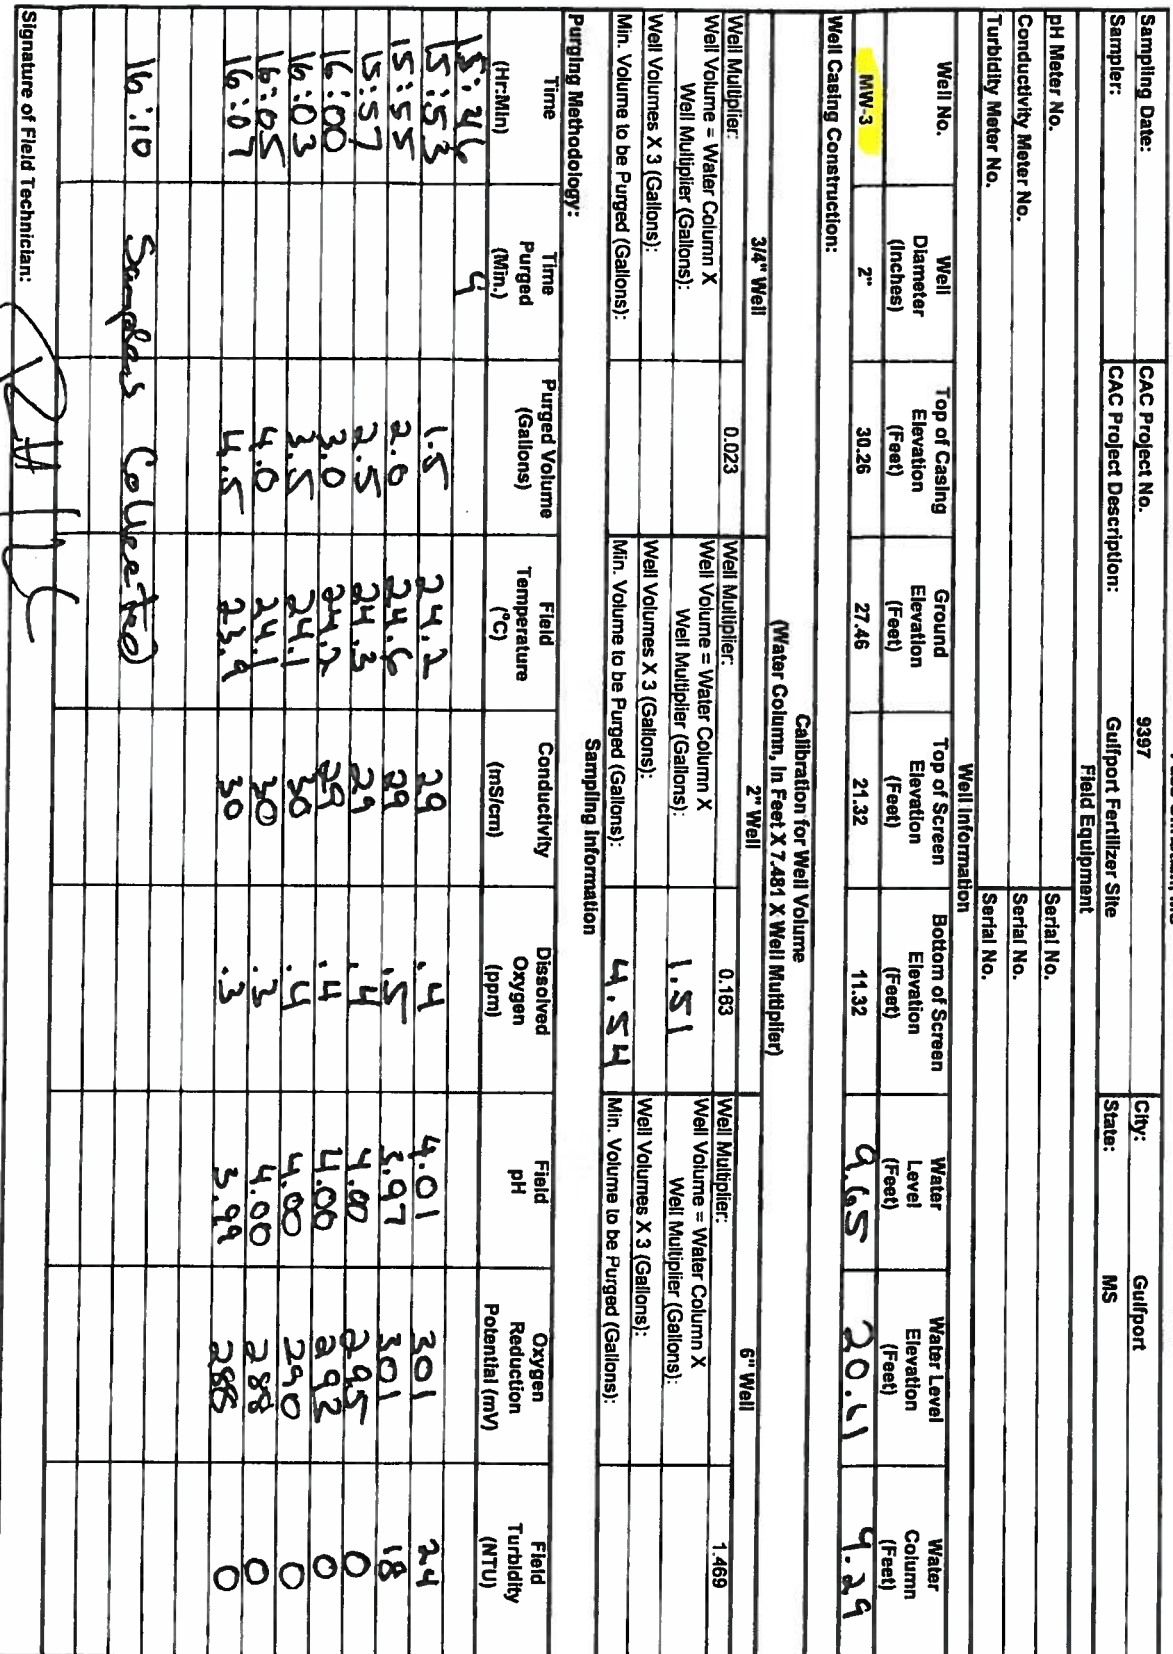 Sampling Date: CAC Project No. 9397 City: Gulfport
Sampler: CAC Project Description: Gulfport Fertilizer Site State: MS
Field Equipment
pH Meter No. Serial No.
Conductivity Meter No. Serial No.
Turbidity Meter No. Serial No.
Well Information
Well No. Well Diameter (Inches) Top of Casing Elevation (Feet) Ground Elevation (Feet) Top of Screen Elevation (Feet) Bottom of Screen Elevation (Feet) Water Level (Feet) Water Level Elevation (Feet) Water Column (Feet)
MW-3 2" 30.26 27.46 21.32 11.32 9.65 20.61 9.29
Well Casing Construction:
Calibration for Well Volume
(Water Column, In Feet X 7.481 X Well Multiplier)
3/4" Well 2" Well 6" Well
Well Multiplier: 0.023 Well Multiplier: 0.163 Well Multiplier: 1.469
Well Volume = Water Column X Well Multiplier (Gallons): Well Volume = Water Column X Well Multiplier (Gallons): 1.51 Well Volume = Water Column X Well Multiplier (Gallons):
Well Volumes X 3 (Gallons): Well Volumes X 3 (Gallons): Well Volumes X 3 (Gallons):
Min. Volume to be Purged (Gallons): Min. Volume to be Purged (Gallons): 4.54 Min. Volume to be Purged (Gallons):
Sampling Information
Purging Methodology:
Time (Hr:Min) Time Purged (Min.) Purged Volume (Gallons) Field Temperature (°C) Conductivity (mS/cm) Dissolved Oxygen (ppm) Field pH Oxygen Reduction Potential (mV) Field Turbidity (NTU)
15:46 9
15:53 1.5 24.2 29 .4 4.01 301 24
15:55 2.0 24.6 29 .5 3.97 301 18
15:57 2.5 24.3 29 .4 4.00 295 0
16:00 3.0 24.2 29 .4 4.00 292 0
16:03 3.5 24.1 30 .4 4.00 290 0
16:05 4.0 24.1 30 .3 4.00 288 0
16:07 4.5 23.9 30 .3 3.99 288 0
16:10 Samples Collected
Signature of Field Technician: